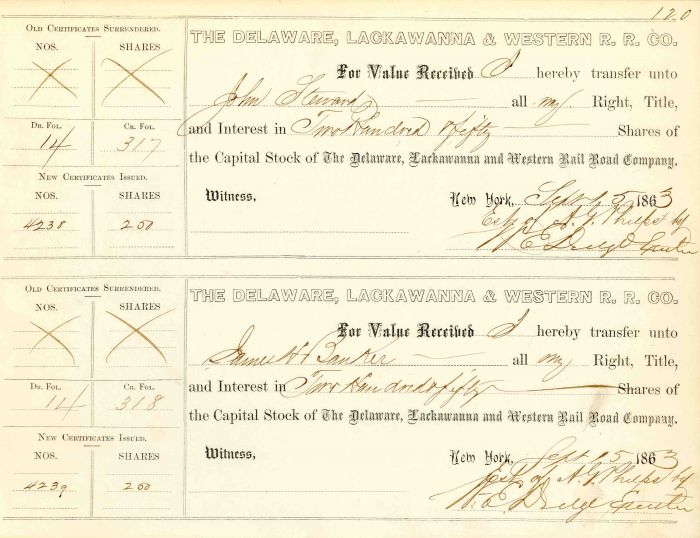 120
OLD CERTIFICATES SURRENDERED.
NOS. SHARES
DR. FOL. CR. FOL.
14 317
NEW CERTIFICATES ISSUED.
NOS. SHARES
4238 250
THE DELAWARE, LACKAWANNA & WESTERN R. R. CO.
For Value Received I hereby transfer unto
John Steward all my Right, Title,
and Interest in Two Hundred & fifty Shares of
the Capital Stock of The Delaware, Lackawanna and Western Rail Road Company.
Witness, New York, Sept 1863
Est of A. G. Phelps by
W E Dodge Executor
OLD CERTIFICATES SURRENDERED.
NOS. SHARES
DR. FOL. CR. FOL.
14 318
NEW CERTIFICATES ISSUED.
NOS. SHARES
4239 250
THE DELAWARE, LACKAWANNA & WESTERN R. R. CO.
For Value Received I hereby transfer unto
James H Banker all my Right, Title,
and Interest in Two Hundred & fifty Shares of
the Capital Stock of The Delaware, Lackawanna and Western Rail Road Company.
Witness, New York, Sept 1863
Est of A. G. Phelps by
W. E Dodge Executor